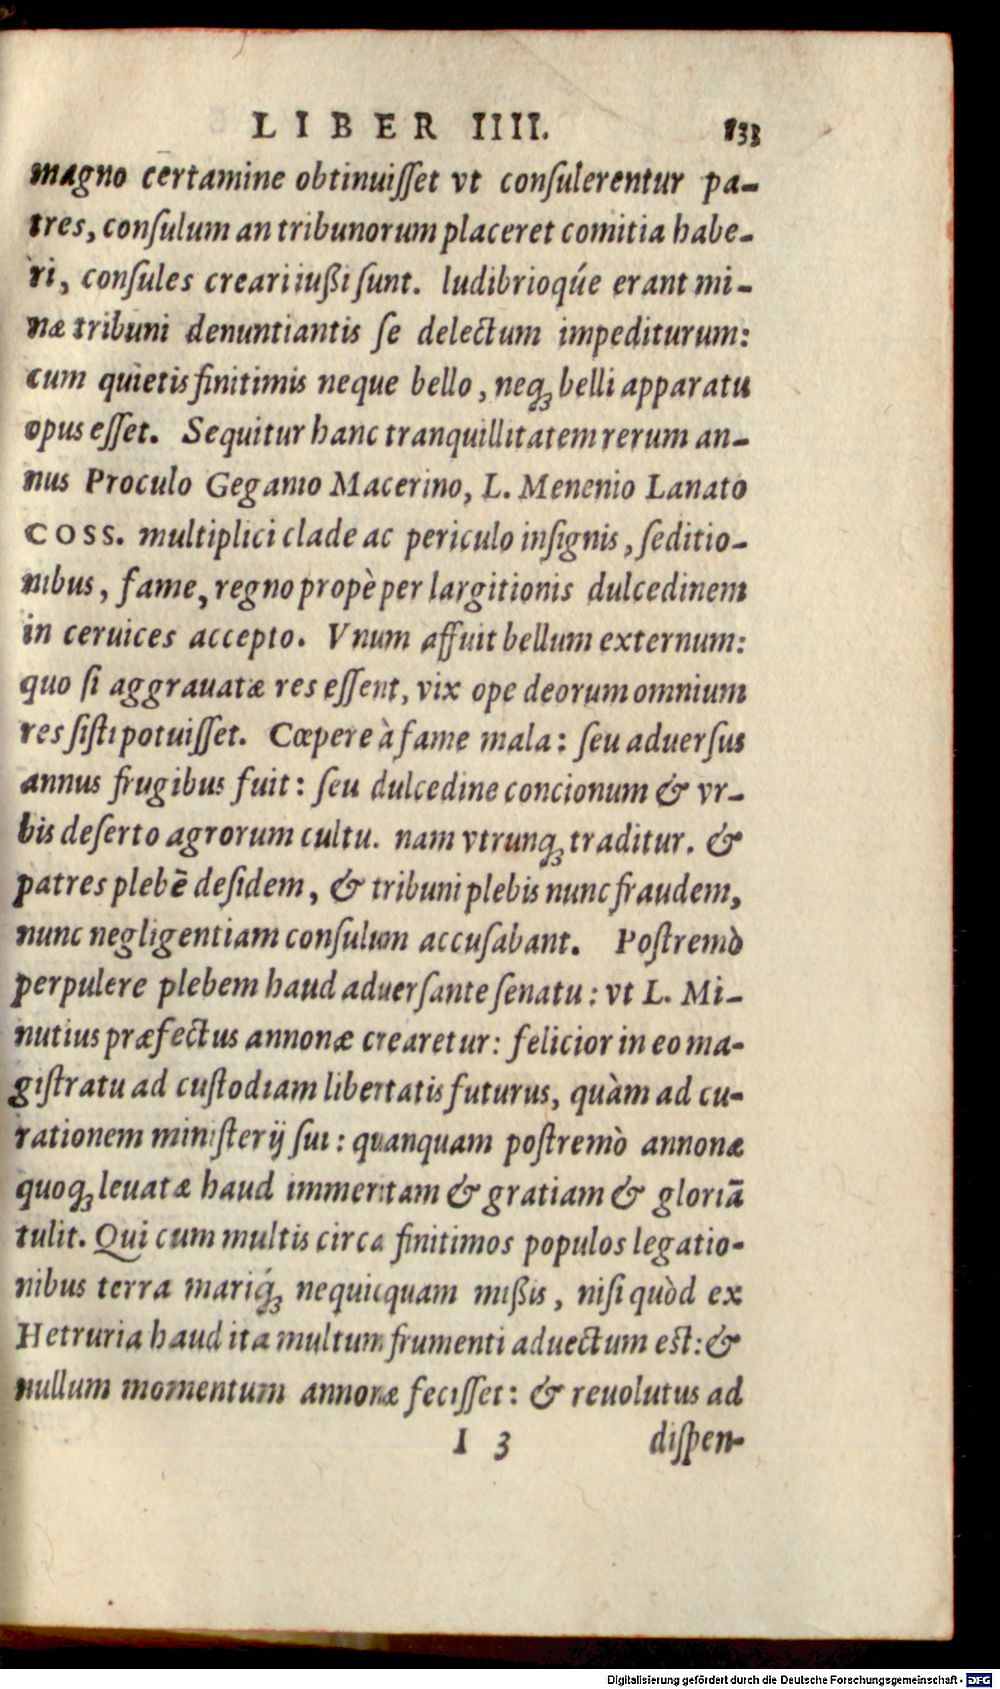 LIBER IIII. 133
magno certamine obtinuiſſet vt conſulerentur pa-
tres, conſulum an tribunorum placeret comitia habe-
ri, conſules creari iußi ſunt. ludibrioq́ue erant mi-
næ tribuni denuntiantis ſe delectum impediturum:
cum quietis finitimis neque bello, neqꝫ belli apparatu
opus eſſet. Sequitur hanc tranquillitatem rerum an-
nus Proculo Geganio Macerino, L. Menenio Lanato
COSS. multiplici clade ac periculo inſignis, ſeditio-
nibus, fame, regno propè per largitionis dulcedinem
in ceruices accepto. Vnum affuit bellum externum:
quo ſi aggrauatæ res eſſent, vix ope deorum omnium
res ſiſti potuiſſet. Cœpere à fame mala: ſeu aduerſus
annus frugibus fuit: ſeu dulcedine concionum & vr-
bis deſerto agrorum cultu. nam vtrunqꝫ traditur. &
patres plebē deſidem, & tribuni plebis nunc fraudem,
nunc negligentiam conſulum accuſabant. Poſtremò
perpulere plebem haud aduerſante ſenatu: vt L. Mi-
nutius præfectus annonæ crearetur: felicior in eo ma-
giſtratu ad cuſtodiam libertatis futurus, quàm ad cu-
rationem miniſterij ſui: quanquam poſtremò annonæ
quoqꝫ leuatæ haud immeritam & gratiam & gloriā
tulit. Qui cum multis circa finitimos populos legatio-
nibus terra mariq́ꝫ nequicquam mißis, niſi quòd ex
Hetruria haud ita multum frumenti aduectum eſt: &
nullum momentum annonæ feciſſet: & reuolutus ad
I 3 diſpen-
Digitalisierung gefördert durch die Deutsche Forschungsgemeinschaft - DFG